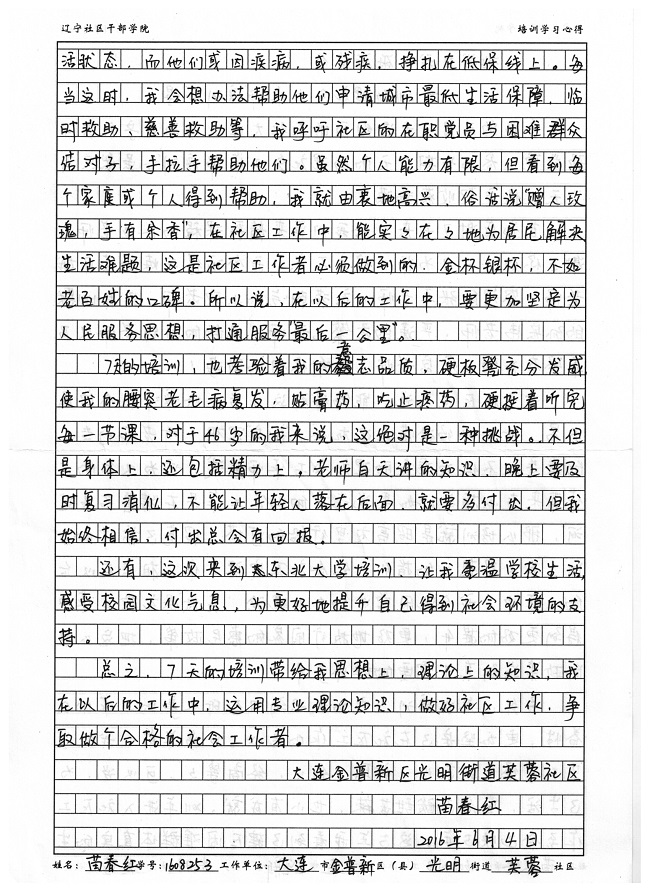 辽宁社区干部学院 培训学习心得
活状态，而他们或因疾病，或残疾，挣扎在低保线上。每
当这时，我会想办法帮助他们申请城市最低生活保障，临
时救助、慈善救助等，我呼吁社区的在职党员与困难群众
结对子，手拉手帮助他们。虽然个人能力有限，但看到每
个家庭或个人得到帮助，我就由衷地高兴，俗话说"赠人玫
瑰，手有余香"，在社区工作中，能实实在在地为居民解决
生活难题，这是社区工作者必须做到的，金杯银杯，不如
老百姓的口碑。所以说，在以后的工作中，要更加坚定为
人民服务思想，打通服务"最后一公里"。
7天的培训，也考验着我的意志品质，硬板凳充分发威
使我的腰突老毛病复发，贴膏药，吃止疼药，硬挺着听完
每一节课，对于46岁的我来说，这绝对是一种挑战。不但
是身体上，还包括精力上。老师白天讲的知识，晚上要及
时复习消化，不能让年轻人落在后面，就要多付出。但我
始终相信，付出总会有回报。
还有，这次来到东北大学培训，让我重温学校生活，
感受校园文化气息，为更好地提升自己得到社会环境的支
持。
总之，7天的培训带给我思想上，理论上的知识，我
在以后的工作中，运用专业理论知识，做好社区工作，争
取做个合格的社会工作者。
大连金普新区光明街道芙蓉社区
苗春红
2016年6月4日
姓名：苗春红学号：1608253工作单位：大连市金普新区（县）光明街道芙蓉社区